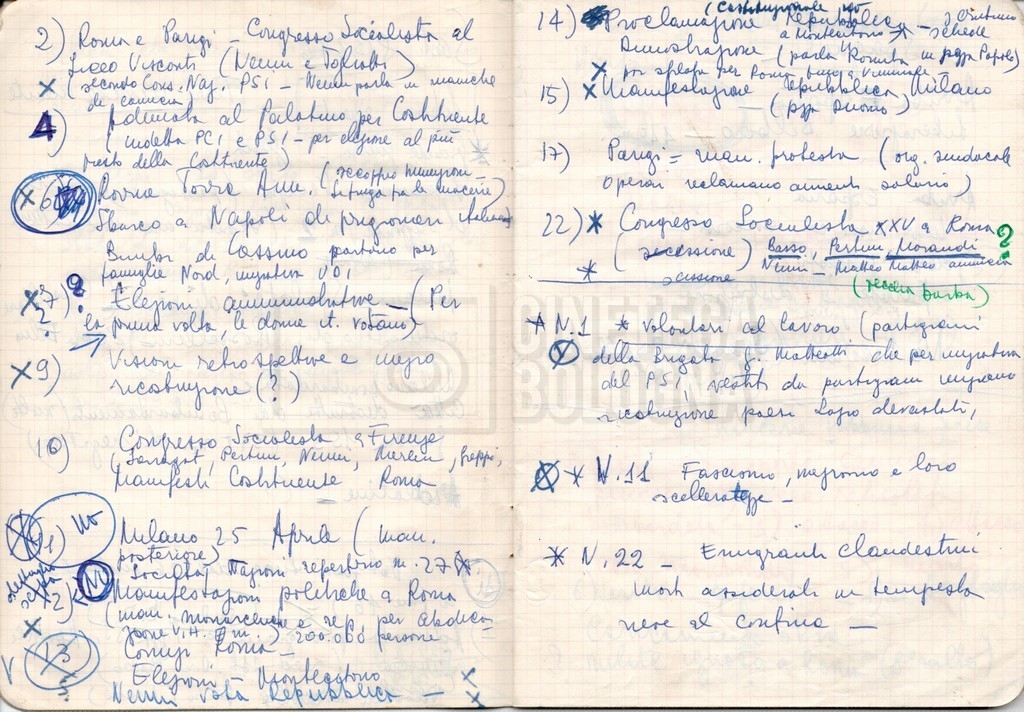 2) Roma e Parigi - Congresso Socialista al
Liceo Visconti (Nenni e Togliatti)
x (secondo Cons. Naz. PSI - Nenni parla in maniche
di camicia)
4) al Palatino per Costituente
(indetta PCI e PSI - per elezione al più
presto della Costituente)
x 6) Roma Torre Ann. (scoppio
Si fruga fra le macerie)
Sbarco a Napoli di prigionieri
Bimbi di Cassino partono per
famiglie Nord, iniziativa UDI
x 7) ? Elezioni amministrative - (Per
? la prima volta, le donne it. votano)
x 9) Visioni retrospettive e
ricostruzione (?)
10) Congresso Socialista a Firenze
(Saragat, Pertini, Nenni, Merlin, Greppi,
Manifesti Costituente Roma
x 11) no Milano 25 Aprile (man.
posteriore)
repertorio n. 27
x 12) NO Manifestazioni politiche a Roma
(man. monarchiche e rep. per
200.000 persone
x Comizi Roma -
V x 13 Elezioni - Montecitorio
Nenni vota Repubblica -
14) Proclamazione (Costituzionale no
Repubblica - scrutinio
a Montecitorio schede
Dimostrazione (parla Romita in pzza Popolo)
x per Roma
15) x Manifestazione Repubblica, Milano
(pzza Duomo)
17) Parigi = man. protesta (org. sindacale
operai reclamano aumenti salario)
22) * Congresso Socialista XXV a Roma
(secessione) Basso, Pertini, Morandi ?
* scissione Nenni - Matteo Matteo annuncia
(vecchia barba)
* N.1 * volontari al lavoro (partigiani
della Brigata G. Matteotti che per iniziativa
del PSI, vestiti da partigiani iniziano
ricostruzione paesi devastati,
* N.11 Fascismo, nazismo e loro
scelleratezze -
* N.22 - Emigranti clandestini
morti assiderati in tempesta
neve al confine -
CINETECA
BOLOGNA